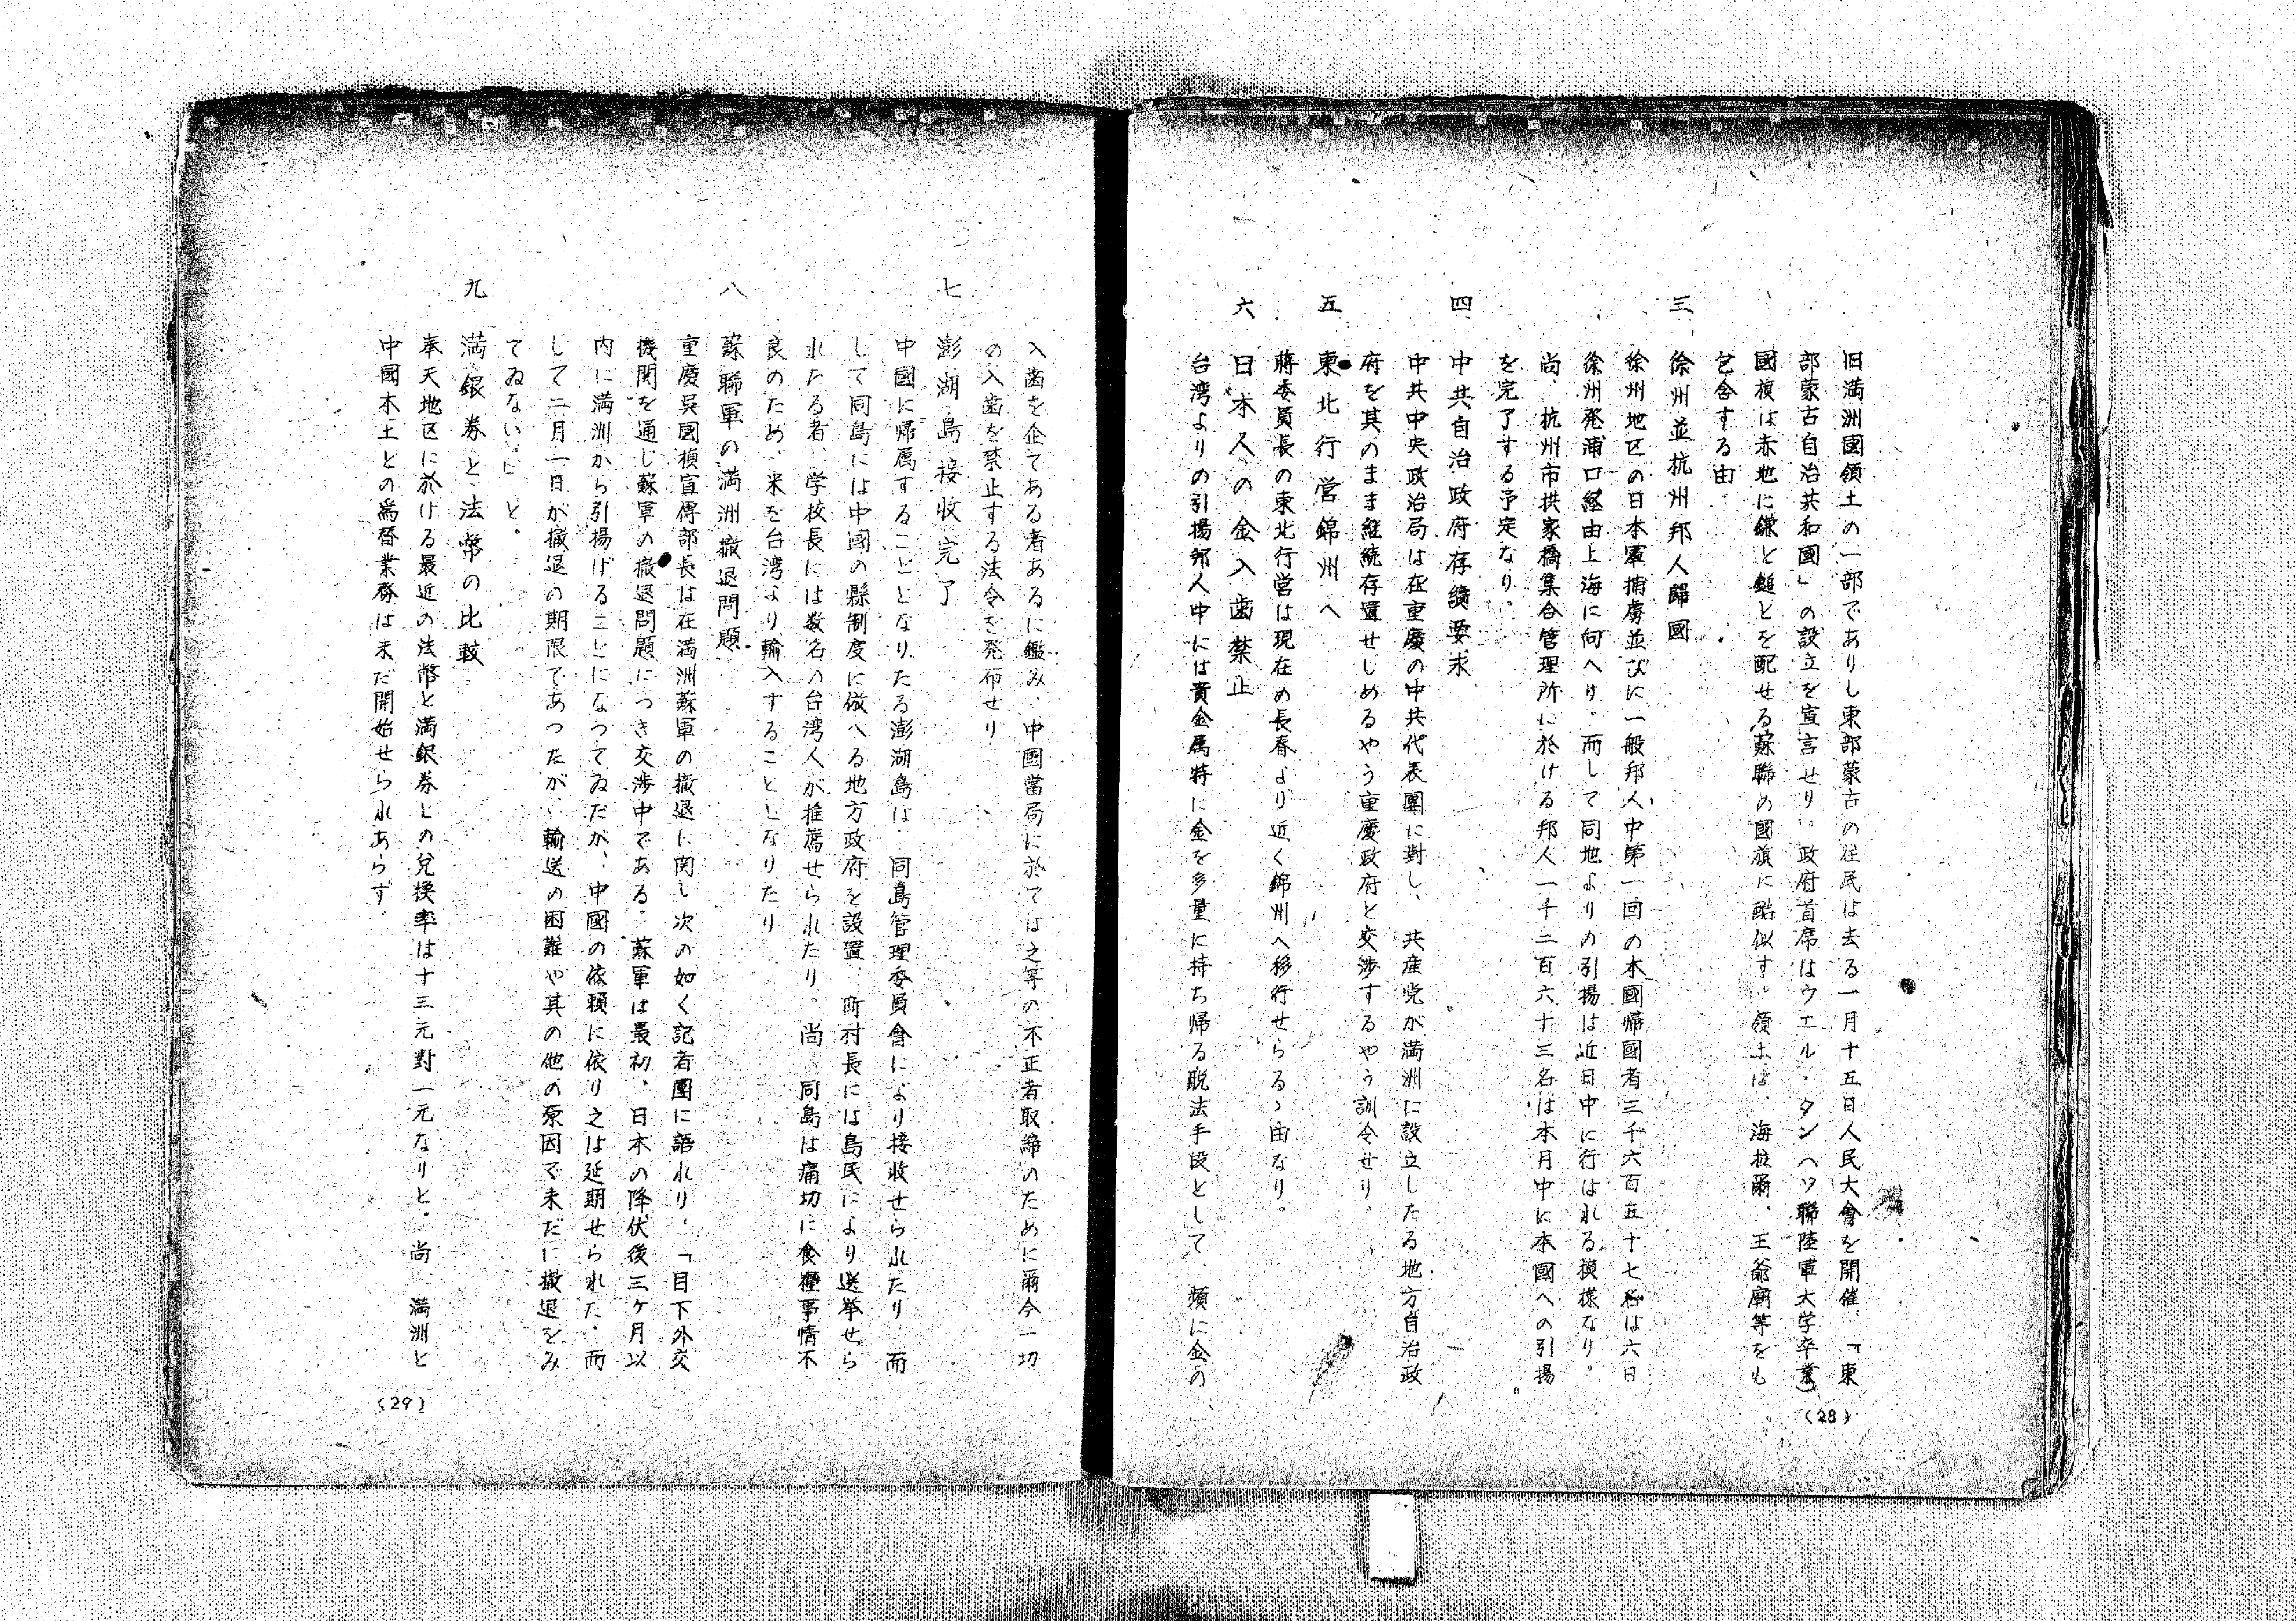 旧満洲國領土の一部でありし東部蒙古の住民は去る一月十五日人民大會を開催、「東
部蒙古自治共和國」の設立を宣言せり。政府首席はウエル・タン(ソ聯陸軍大学卒業)
國旗は赤地に鎌と鎚とを配せる蘇聯の國旗に酷似す。領土は、海拉爾、王爺廟等をも
包含する由
三 徐州並杭州邦人歸國
徐州地区の日本軍捕虜並びに一般邦人中第一回の本國帰國者三千六百五十七名は六日
徐州発浦口経由上海に向へり。而して同地よりの引揚は近日中に行はれる模様なり。
尚、杭州市拱家橋集合管理所に於ける邦人一千二百六十三名は本月中に本國への引揚
を完了する予定なり。
四 中共自治政府存續要求
中共中央政治局は在重慶の中共代表團に對し、共産党が満洲に設立したる地方自治政
府を其のまま継続存置せしめるやう重慶政府と交渉するやう訓令せり。
五 東北行営錦州へ
蔣委員長の東北行営は現在の長春より近く錦州へ移行せらるゝ由なり。
六 日本人の金入歯禁止
台湾よりの引揚邦人中には貴金属特に金を多量に持ち帰る脱法手段として、頻に金の
(28)
入歯を企てある者あるに鑑み、中國當局に於ては之等の不正者取締のために爾今一切
の入歯を禁止する法令を発布せり
七 澎湖島接收完了
中國に帰属することとなりたる澎湖島は、同島管理委員會により接收せられたり、而
して同島には中國の縣制度に倣へる地方政府を設置、町村長には島民により選挙せら
れたる者、学校長には数名の台湾人が推薦せられたり。尚、同島は痛切に食糧事情不
良のため、米を台湾より輸入することとなりたり
八 蘇聯軍の満洲撤退問題
重慶呉國楨宣傳部長は在満洲蘇軍の撤退に関し次の如く記者團に語れり、「目下外交
機関を通し蘇軍の撤退問題につき交渉中である。蘇軍は最初、日本の降伏後三ケ月以
内に満洲から引揚げることになつてゐたが、中國の依頼に依り之は延期せられた、而
して二月一日が撤退の期限であつたが、輸送の困難や其の他の原因で未だに撤退をみ
てゐない。」と。
九 満銀券と法幣の比較
奉天地区に於ける最近の法幣と満銀券との兌換率は十三元對一元なりと。尚、満洲と
中國本土との為替業務は未だ開始せられあらず、
(29)